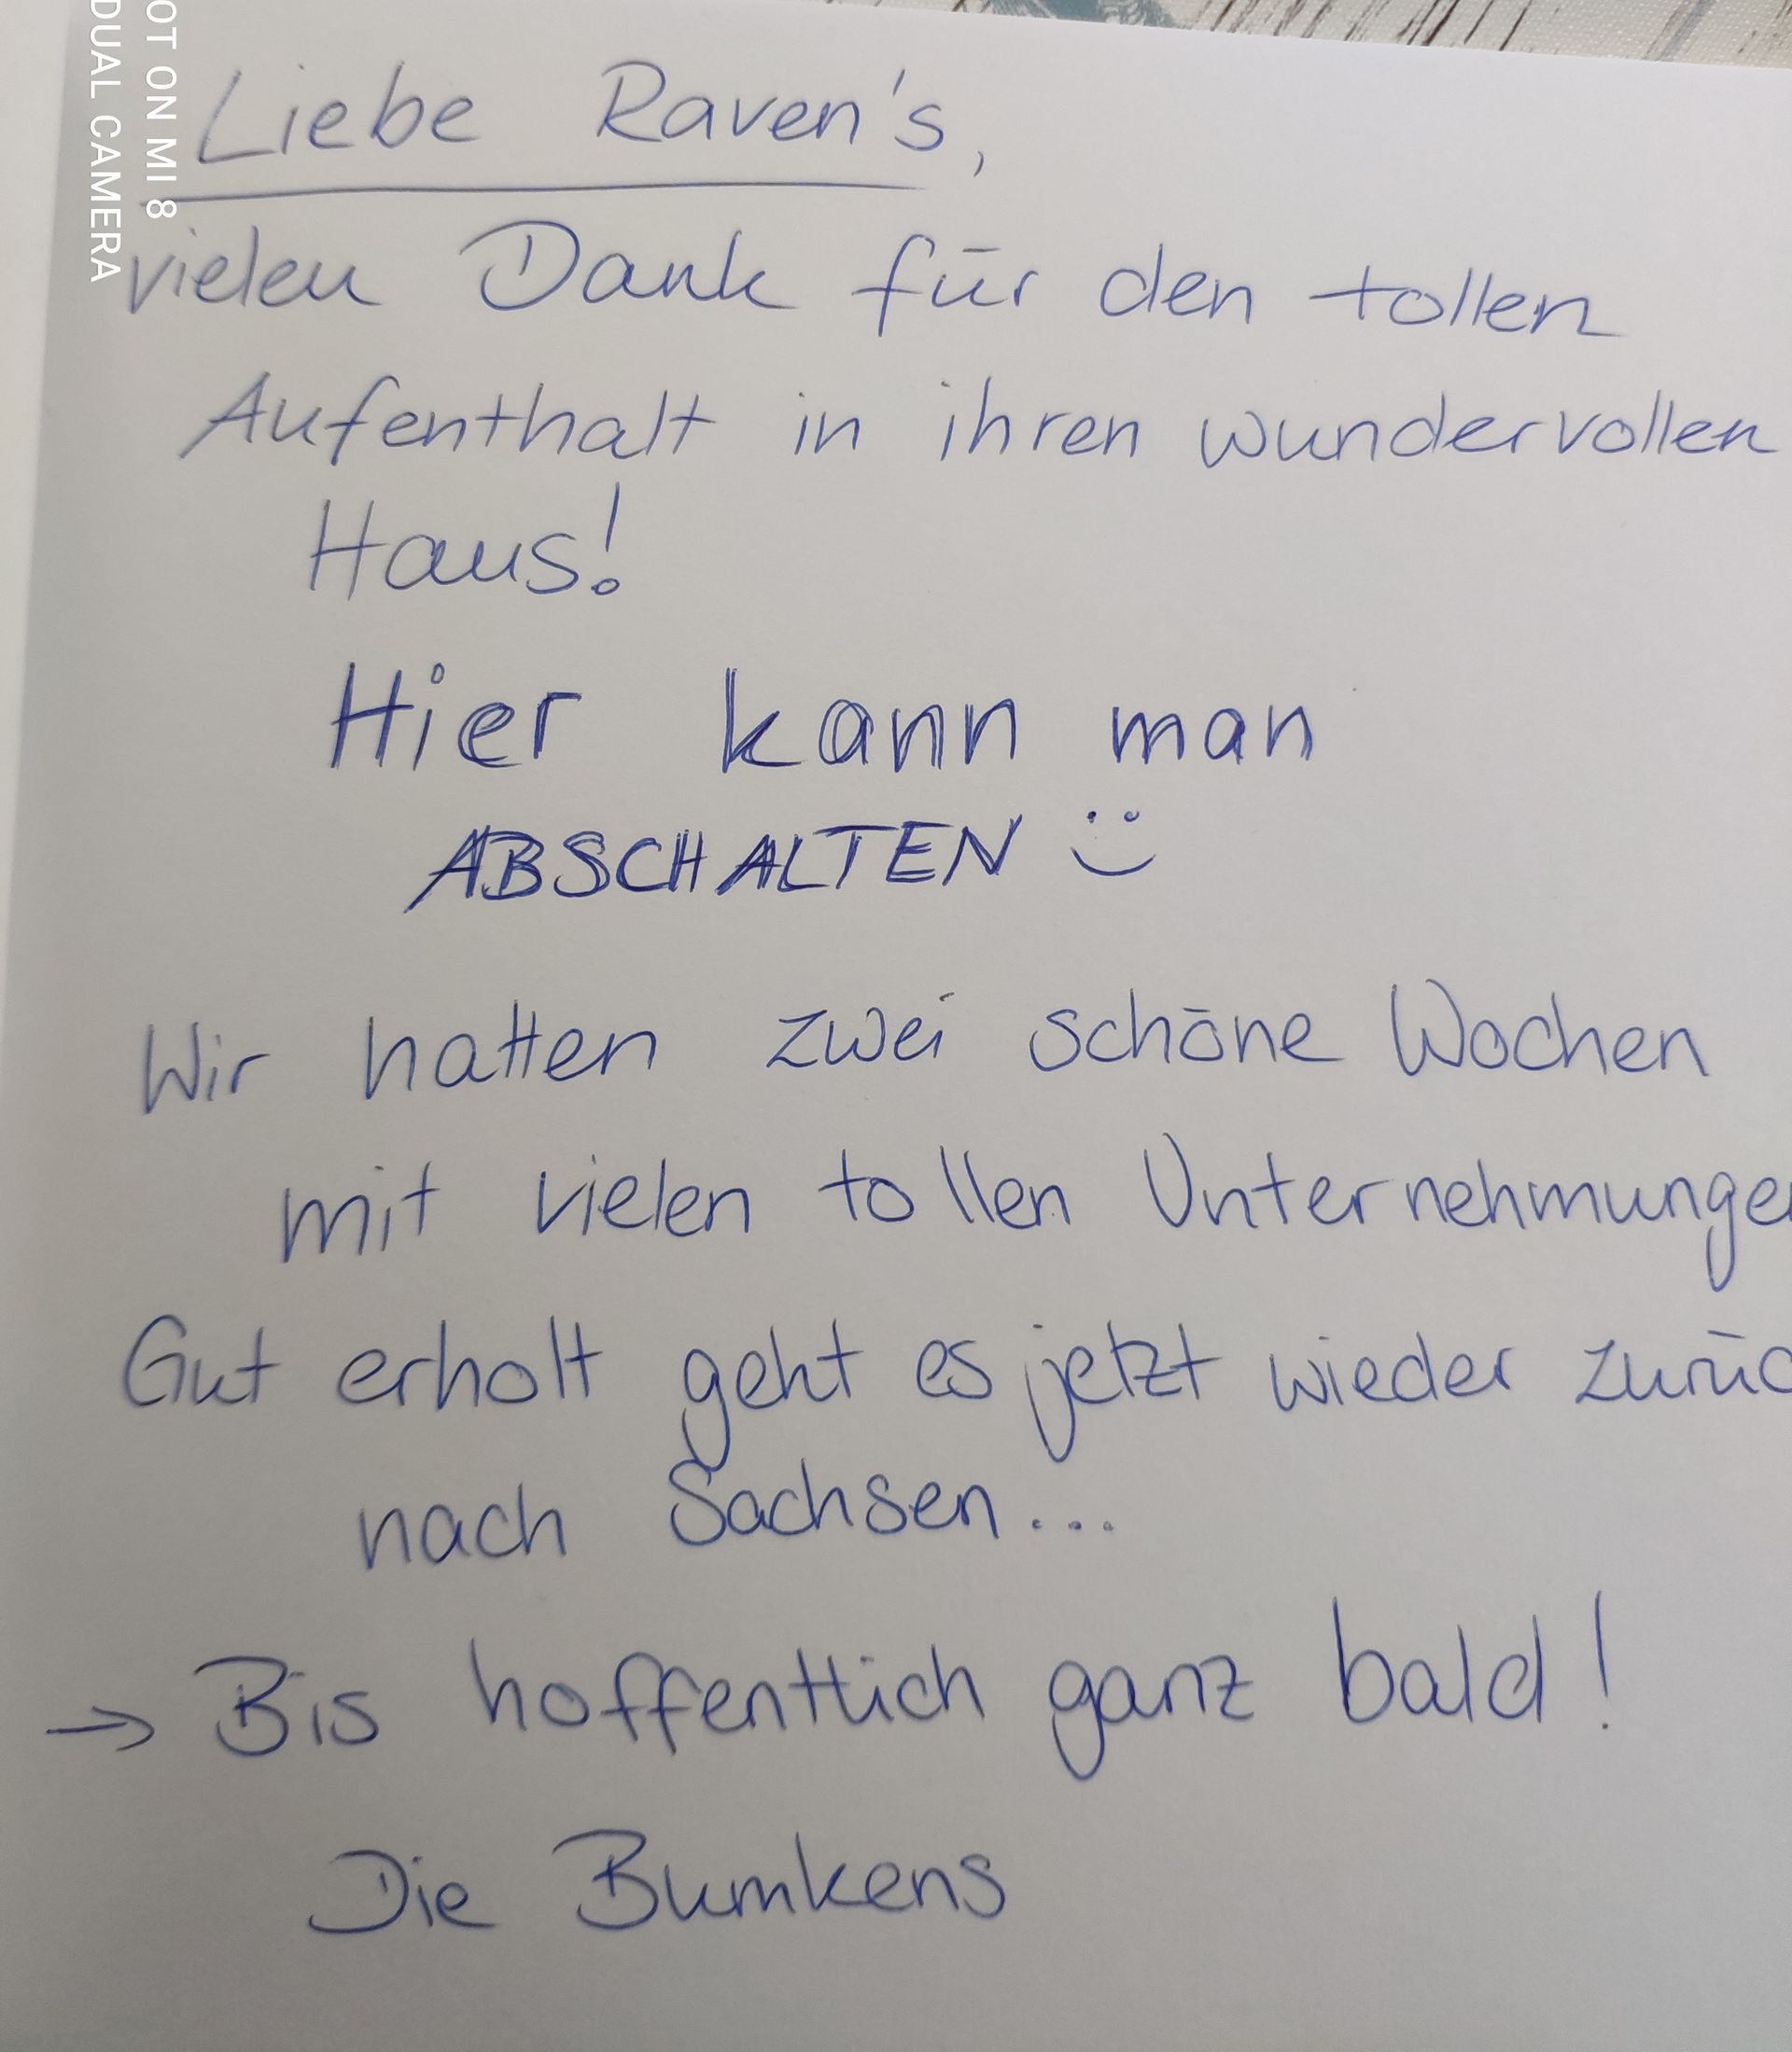 OT ON MI 8
DUAL CAMERA
Liebe Raven's,
vielen Dank für den tollen
Aufenthalt in ihren wundervollen
Haus!
Hier kann man
ABSCHALTEN
Wir hatten zwei schöne Wochen
mit vielen tollen Unternehmungen
Gut erholt geht es jetzt wieder zurüc
nach Sachsen...
→ Bis hoffentlich ganz bald!
Die Bumkens